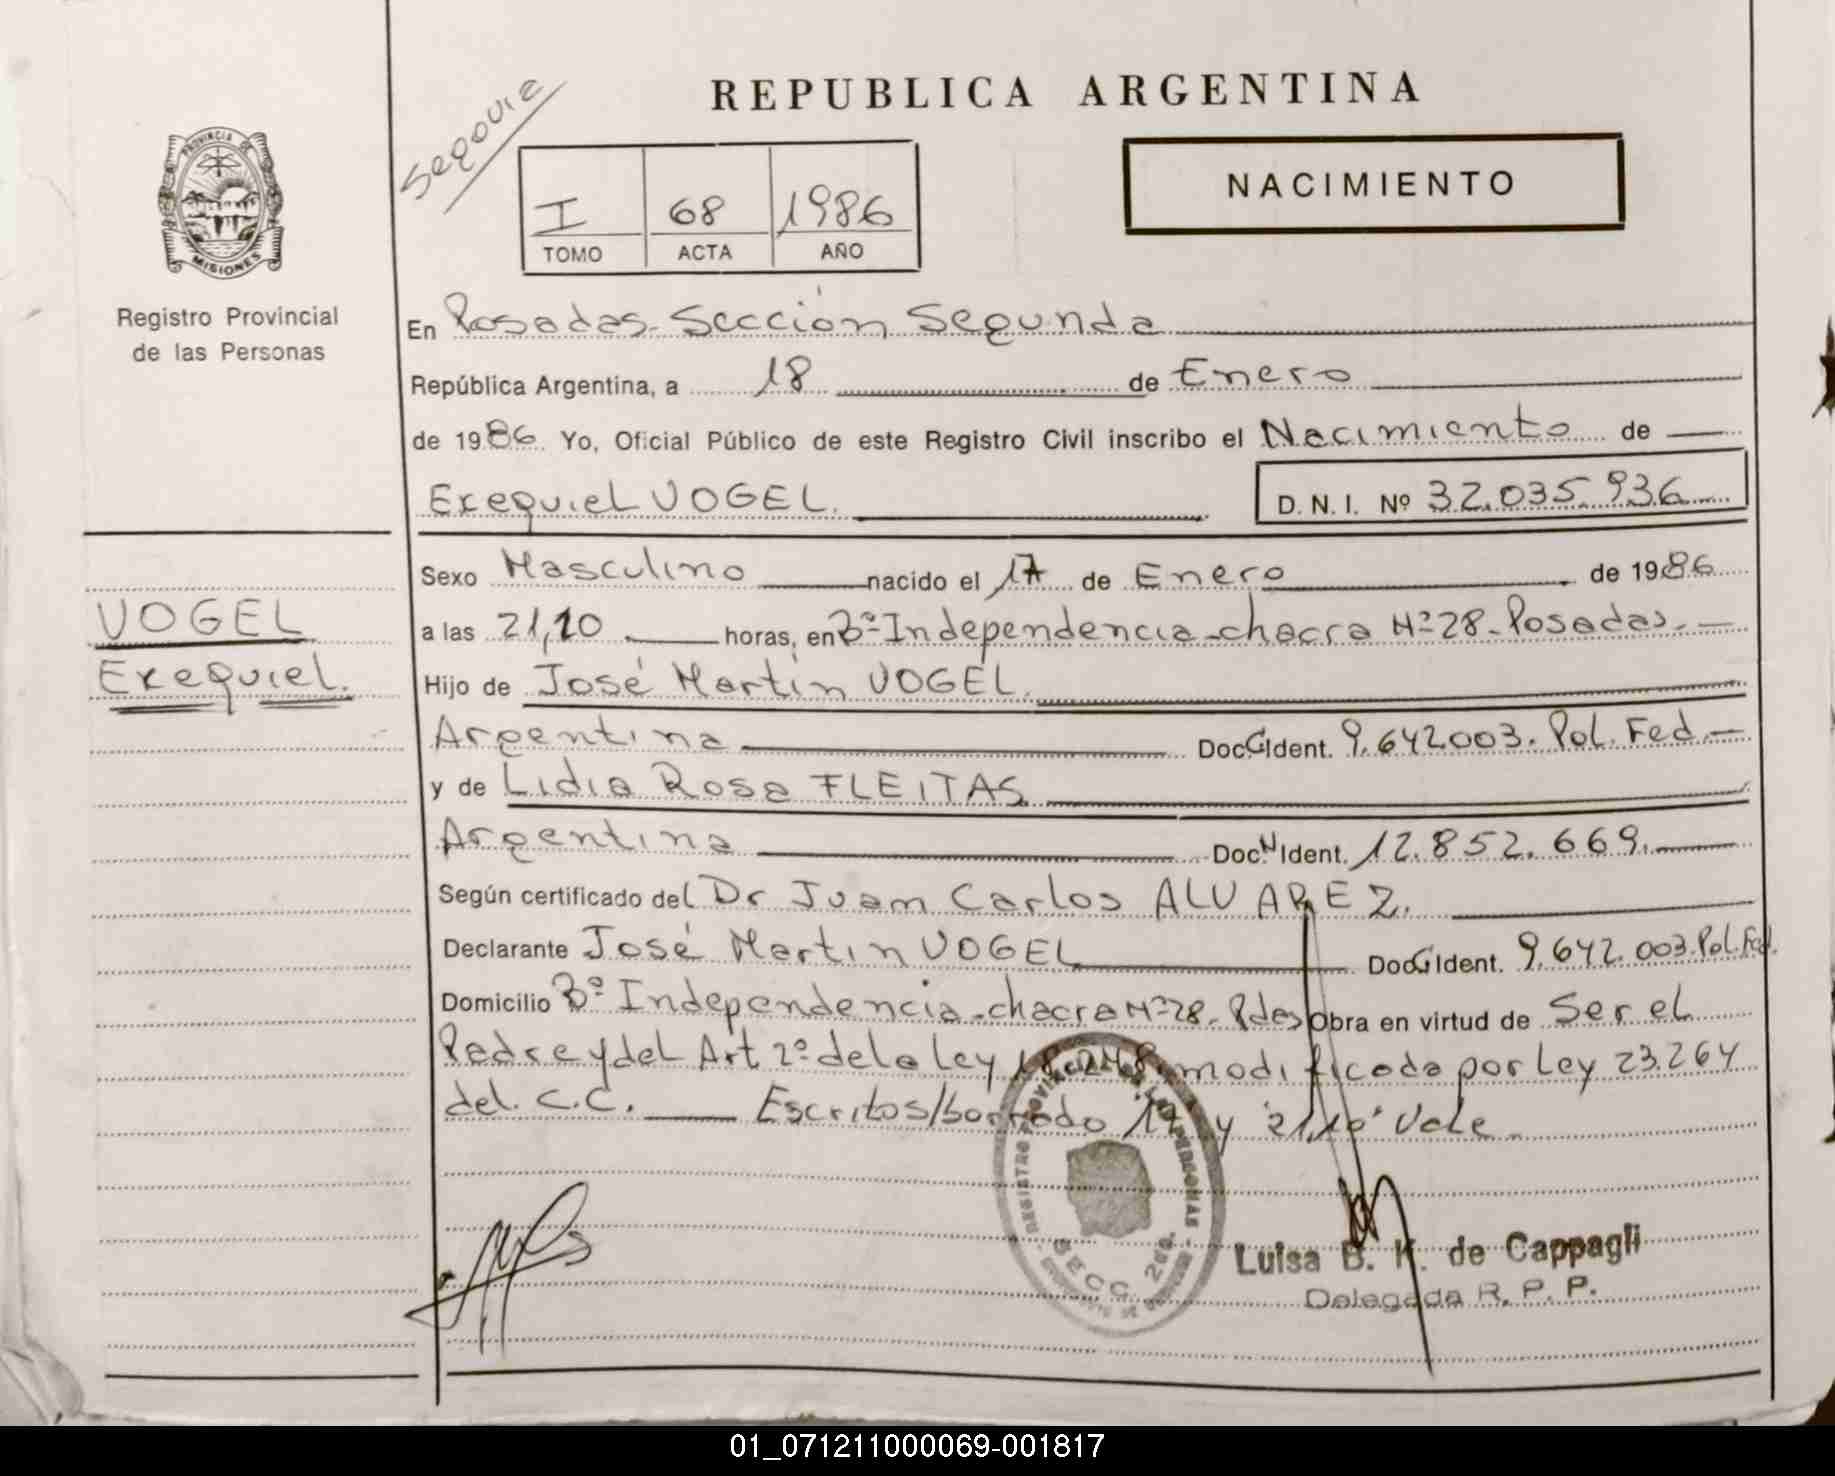 Segovia
REPUBLICA ARGENTINA
PROVINCIA DE
MISIONES
Registro Provincial
de las Personas
I 68 1986
TOMO ACTA AÑO
NACIMIENTO
En Posadas-Sección Segunda
República Argentina, a 18 de Enero
de 1986. Yo, Oficial Público de este Registro Civil inscribo el Nacimiento de
Exequiel VOGEL. D. N. I. Nº 32.035.936
Sexo Masculino nacido el 17 de Enero de 1986
VOGEL
Exequiel.
a las 21,10 horas, en Bº Independencia-chacra Nº 28-Posadas.-
Hijo de José Martín VOGEL.
Argentina Doc. C Ident. 9.642.003. Pol. Fed.-
y de Lidia Rosa FLEITAS
Argentina Doc. N Ident. 12.852.669.
Según certificado del Dr Juan Carlos ALVAREZ.
Declarante José Martin VOGEL Doc. C Ident. 9.642.003. Pol. Fed.
Domicilio Bº Independencia-chacra Nº 28- Pdas Obra en virtud de Ser el
Padre y del Art 2º de la Ley 18.248, modificada por Ley 23.264
del C.C. Escritos/borrado "17" y "21,10" Vale
SECC. 2da.
Luisa B. K. de Cappagli
Delegada R. P. P.
01_071211000069-001817